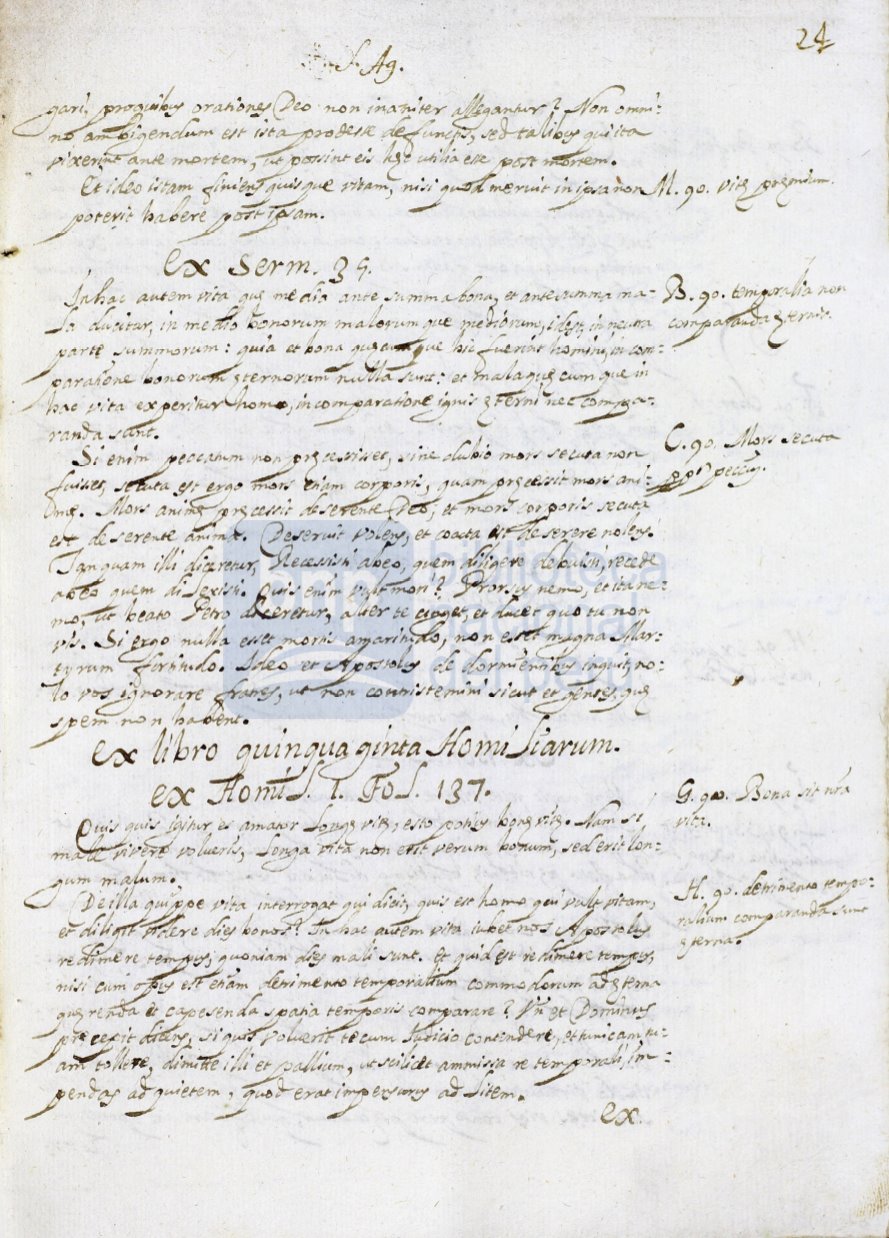 24
S. Ag.
gari, pro quibus orationes Deo non inaniter allegantur? Non omni=
no ambigendum est ista prodesse defunctis, sed talibus qui ita
vixerint ante mortem, ut possint eis hęc utilia esse post mortem.
Et ideo istam finiens quisque vitam, nisi quod meruit in ipsa non
poterit habere post ipsam.
M. 90. vitę pręmium.
Ex Serm. 35.
In hac autem vita quę media ante summa bona, et ante summa ma=
la ducitur, in medio bonorum malorumque mediorum, idest, in neutra
parte summorum: quia et bona quęcumque hic fuerint homini, in com=
paratione bonorum ęternorum nulla sunt: et mala quęcumque in
hac vita experitur homo, in comparatione ignis ęterni nec compa=
randa sunt.
B. 90. temporalia non
comparanda ęternis.
Si enim peccatum non pręcessisset, sine dubio mors secuta non
fuisset, secuta est ergo mors etiam corporis, quam pręcessit mors ani=
mę. Mors animę pręcessit deserente Deo, et mors corporis secuta
est deserente anima. Deseruit volens, et coacta est deserere nolens.
Tanquam illi diceretur, Recessisti a Deo, quem diligere debuisti, recede
a Deo quem dilexisti. Quis enim vult mori? Prorsus nemo, et ita ne=
mo, ut beato Petro diceretur, alter te cinget, et ducet quo tu non
vis. Si ergo nulla esset mortis amaritudo, non esset magna Mar=
tyrum fortitudo. Ideo et Apostolus de dormientibus inquit, no=
lo vos ignorare fratres, ut non contristemini sicut et gentes, quę
spem non habent.
C. 90. Mors secuta
pp.r peccm.
Ex libro quinquaginta Homiliarum.
ex Homil. 1. Fol. 137.
Quisquis igitur es amator longę vitę, esto potius bonę vitę. Nam si
male vivere volueris, longa vita non erit verum bonum, sed erit lon=
gum malum.
G. 90. Bona sit nra
vita.
De illa quippe vita interrogat qui dicit, quis est homo qui vult vitam,
et diligit videre dies bonos? In hac autem vita iubet nos Apostolus
redimere tempus, quoniam dies mali sunt. Et quid est redimere tempus,
nisi cum opus est etiam detrimento temporalium commodorum ad ęterna
quęrenda et capesenda spatia temporis comparare? Vn et Dominus
pręcepit dicens, si quis voluerit tecum Iudicio contendere, et tunicam tu=
am tollere, dimitte illi et pallium, ut scilicet ammissa re temporali, im=
pendas ad quietem, quod erat impensurus ad litem.
H. 90. detrimento tempo=
ralium comparanda sunt
ęterna.
ex
biblioteca
nacional
del perú